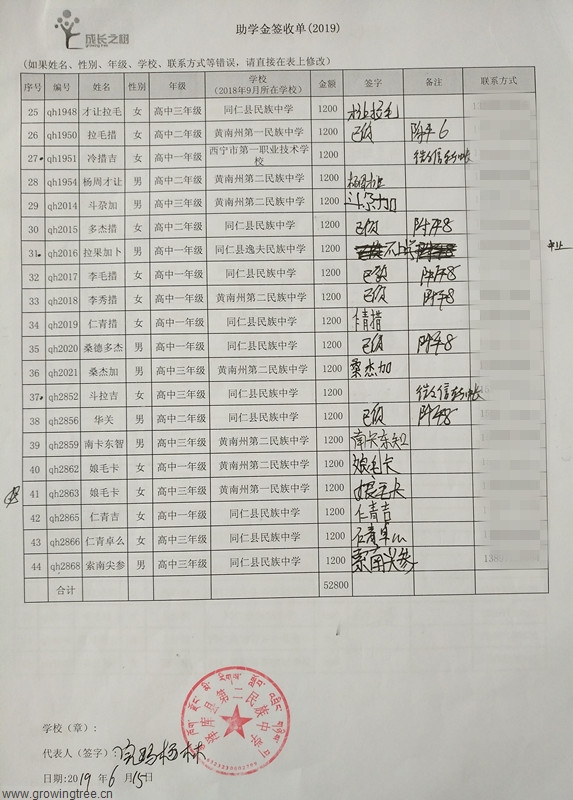 成长之树
growing tree
助学金签收单(2019)
(如果姓名、性别、年级、学校、联系方式等错误，请直接在表上修改)
序号 编号 姓名 性别 年级 学校(2018年9月所在学校) 金额 签字 备注 联系方式
25 qh1948 才让拉毛 女 高中三年级 同仁县民族中学 1200 才让拉毛
26 qh1950 拉毛措 女 高中二年级 黄南州第一民族中学 1200 已领 附件6
27 qh1951 冷措吉 女 高中一年级 西宁市第一职业技术学校 1200 微信转帐
28 qh1954 杨周才让 男 高中二年级 黄南州第二民族中学 1200
29 qh2014 斗尕加 男 高中三年级 黄南州第二民族中学 1200 斗尕加
30 qh2015 多杰措 女 高中二年级 同仁县民族中学 1200 已领 附件8
31 qh2016 拉果加卜 男 高中一年级 同仁县逸夫民族中学 1200 不上学
32 qh2017 李毛措 女 高中一年级 同仁县民族中学 1200 已领 附件8
33 qh2018 李秀措 女 高中一年级 黄南州第二民族中学 1200 已领 附件8
34 qh2019 仁青措 女 高中一年级 同仁县民族中学 1200
35 qh2020 桑德多杰 男 高中一年级 同仁县民族中学 1200 已领 附件8
36 qh2021 桑杰加 男 高中三年级 黄南州第二民族中学 1200 桑杰加
37 qh2852 斗拉吉 女 高中三年级 同仁县民族中学 1200 微信转帐
38 qh2856 华关 男 高中二年级 同仁县民族中学 1200 已领 附件8
39 qh2859 南卡东智 男 高中三年级 黄南州第二民族中学 1200 南卡东知
40 qh2862 娘毛卡 女 高中一年级 黄南州第二民族中学 1200 娘毛卡
41 qh2863 娘毛卡 女 高中三年级 黄南州第一民族中学 1200 娘毛卡
42 qh2865 仁青吉 女 高中一年级 同仁县民族中学 1200 仁青吉
43 qh2866 仁青卓么 女 高中三年级 同仁县民族中学 1200
44 qh2868 索南尖参 男 高中三年级 同仁县民族中学 1200 索南尖参
合计 52800
学校（章）：
代表人（签字）：
日期:2019年6月15日
第二民族中学
www.growingtree.cn